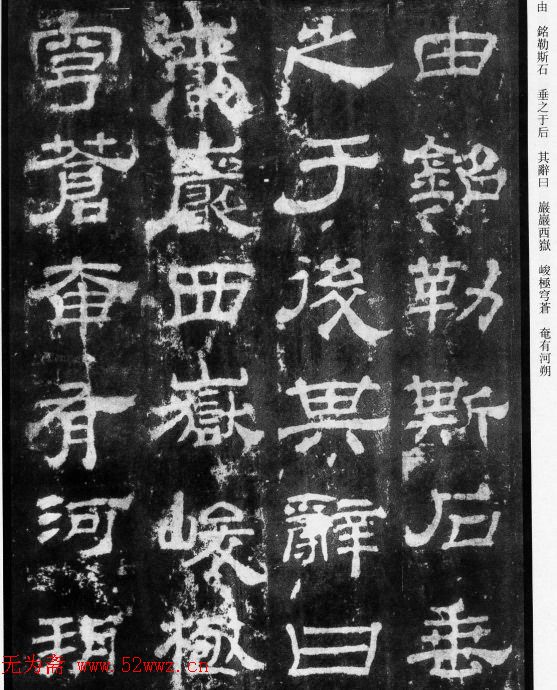 由銘勒斯石垂
之于後其辭曰
巖巖西嶽峻極
穹蒼奄有河朔
由 銘勒斯石 垂之于后 其辭曰 巖巖西嶽 峻極穹蒼 奄有河朔
无为斋 www.52wwz.cn